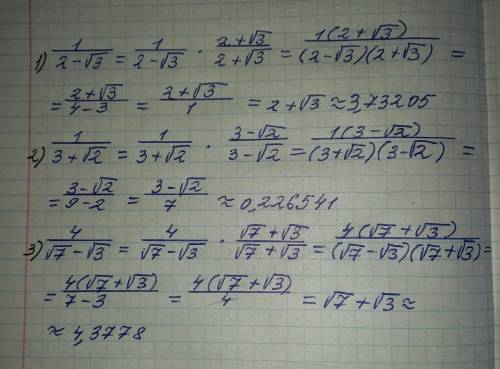 1) 1/(2-√3) = 1/(2-√3) · (2+√3)/(2+√3) = 1(2+√3)/((2-√3)(2+√3)) =
= (2+√3)/(4-3) = (2+√3)/1 = 2+√3 ≈ 3,73205
2) 1/(3+√2) = 1/(3+√2) · (3-√2)/(3-√2) = 1(3-√2)/((3+√2)(3-√2)) =
= (3-√2)/(9-2) = (3-√2)/7 ≈ 0,226541
3) 4/(√7-√3) = 4/(√7-√3) · (√7+√3)/(√7+√3) = 4(√7+√3)/((√7-√3)(√7+√3)) =
= 4(√7+√3)/(7-3) = 4(√7+√3)/4 = √7+√3 ≈
≈ 4,3778